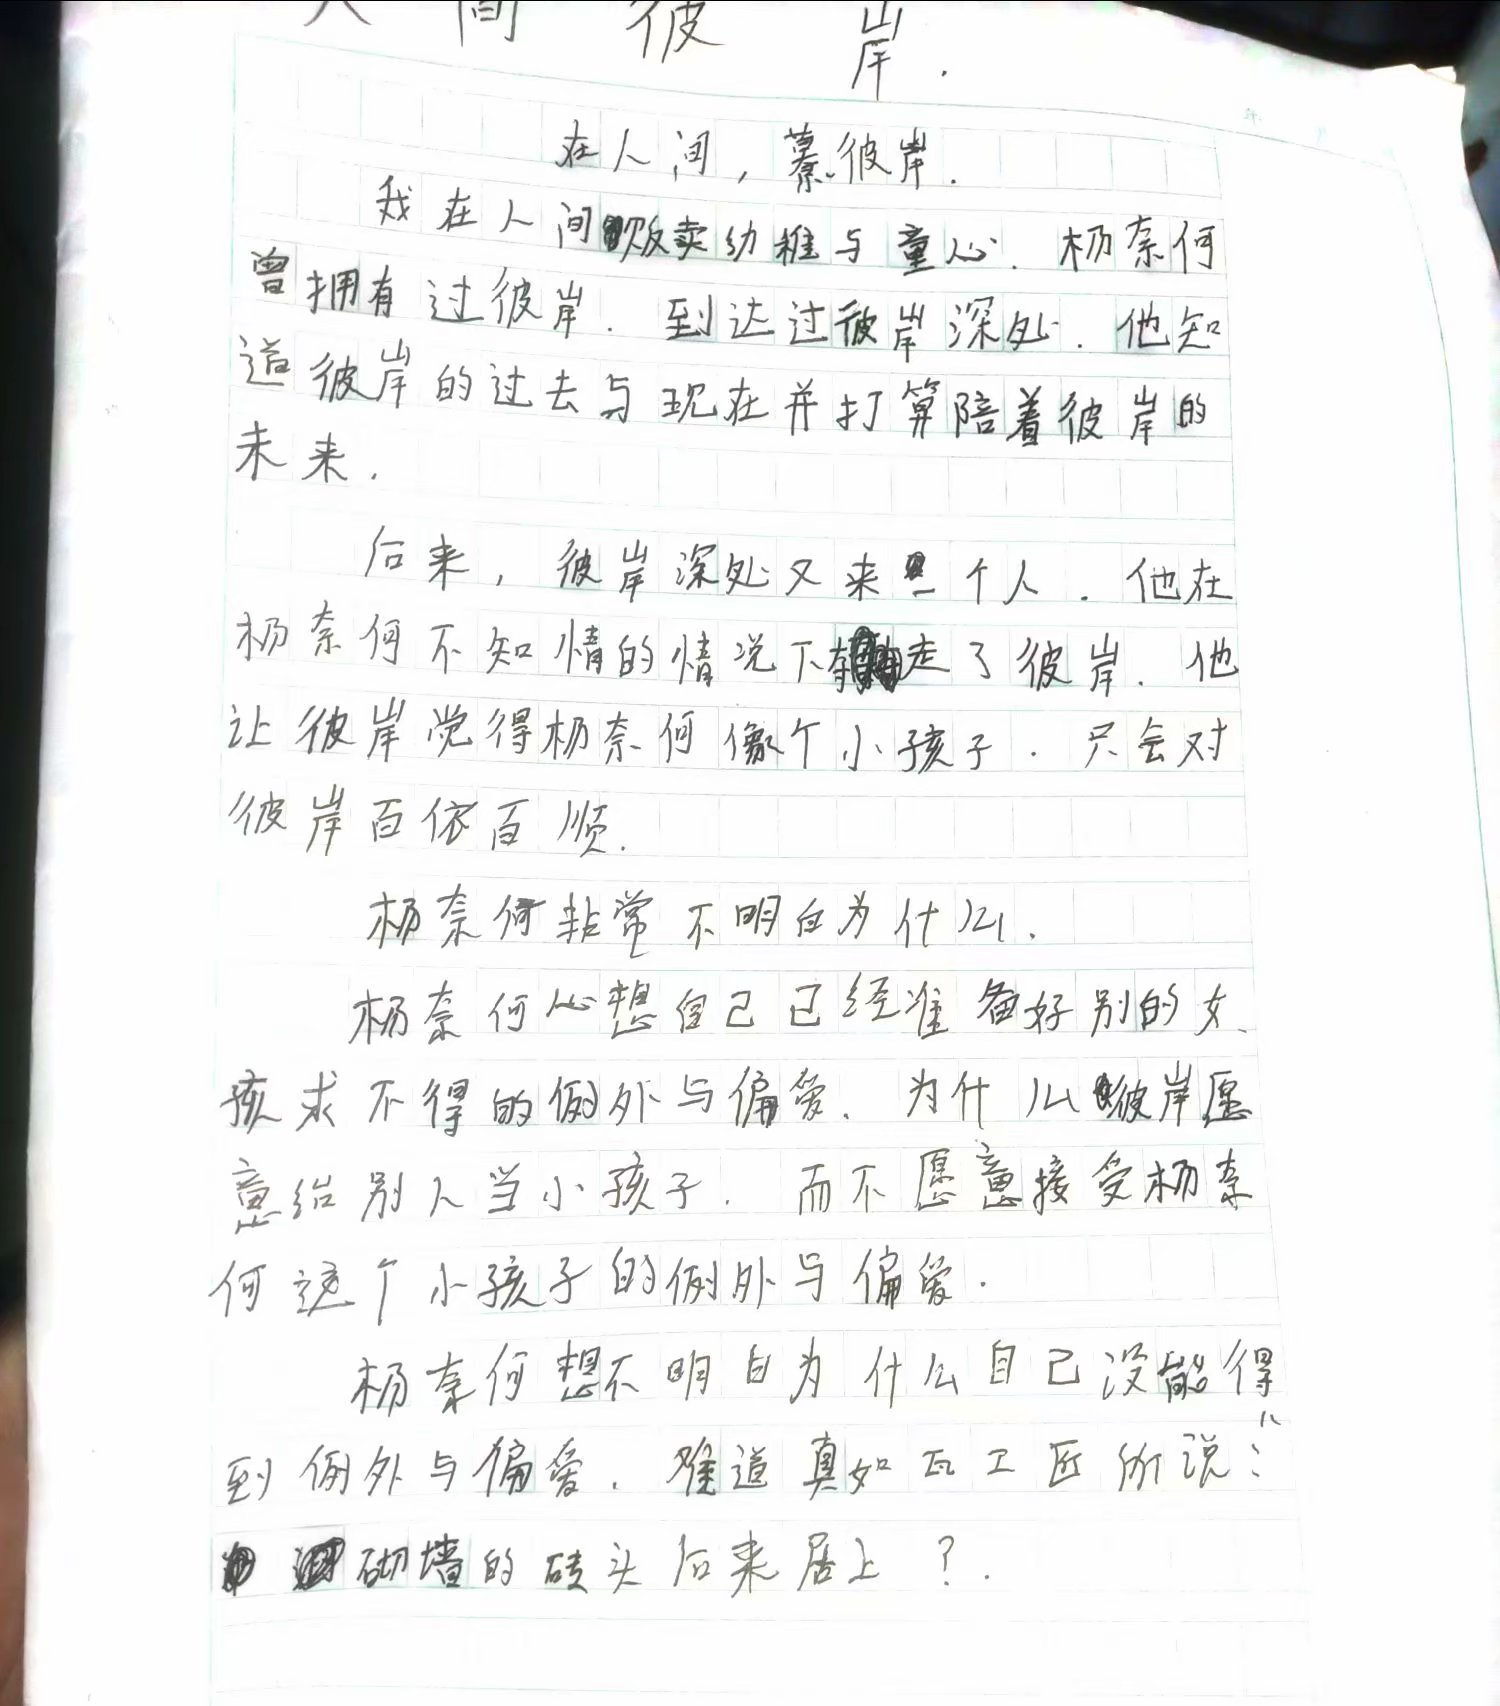 人间彼岸.
在人间,慕彼岸.
我在人间贩卖幼稚与童心.杨奈何
曾拥有过彼岸.到达过彼岸深处.他知
道彼岸的过去与现在并打算陪着彼岸的
未来.
后来,彼岸深处又来一个人.他在
杨奈何不知情的情况下走了彼岸.他
让彼岸觉得杨奈何像个小孩子.只会对
彼岸百依百顺.
杨奈何非常不明白为什么.
杨奈何心想自己已经准备好别的女
孩求不得的例外与偏爱.为什么彼岸愿
意给别人当小孩子.而不愿意接受杨奈
何这个小孩子的例外与偏爱.
杨奈何想不明白为什么自己没能得
到例外与偏爱.难道真如瓦工匠所说:“
砌墙的砖头后来居上?.